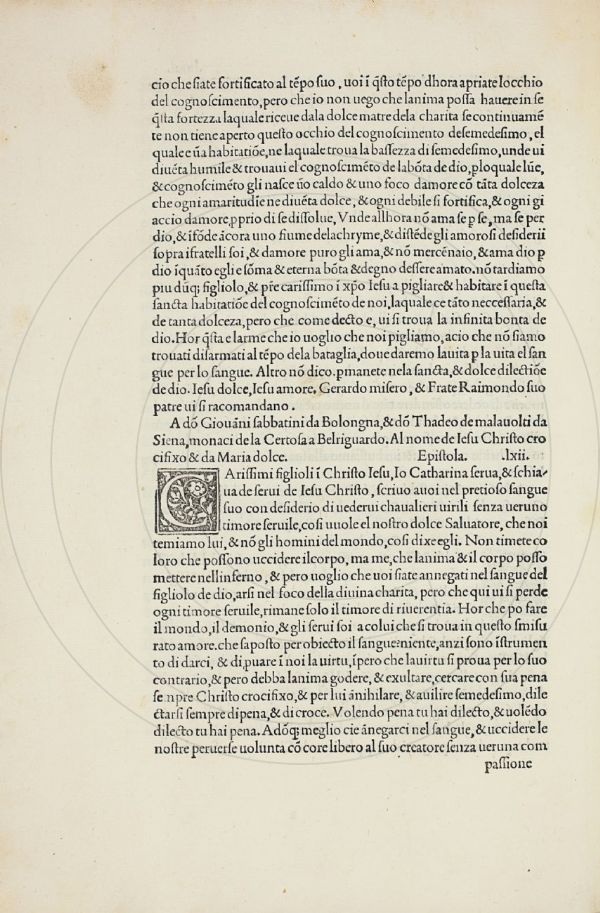 cio che ſiate fortificato al tẽpo ſuo , uoi ĩ q̃ſto tẽpo dhora apriate locchio
del cognoſcimento, pero che io non uego che lanima poſſa hauere in ſe
q̃ſta fortezza laquale riceue dala dolce matre dela charita ſe continuamẽ
te non tiene aperto queſto occhio del cognoſcimento deſemedeſimo, el
quale e ũa habitatiõe, ne laquale troua la baſſezza di ſemedeſimo, unde ui
diuẽta humile & trouaui el cognoſcimẽto de labõta de dio, ploquale lũe,
& cognoſcimẽto gli naſce ũo caldo & uno foco damore cõ tãta dolceza
che ogni amaritudĩe ne diuẽta dolce, & ogni debile ſi fortifica, & ogni gi
accio damore, pprio di ſe diſſolue, Vnde allhora nõ ama ſe p ſe, ma ſe per
dio, & ĩfõde ãcora uno fiume delachryme, & diſtẽde gli amoroſi deſiderii
ſopra ifratelli ſoi , & damore puro gli ama, & nõ mercẽnaio, & ama dio p
dio ĩquãto egli e ſõma & eterna bõta & degno deſſere amato. nõ tardiamo
piu dũq; figliolo, & pr̃e cariſſimo ĩ xp̃o Ieſu a pigliare & habitare ĩ queſta
ſancta habitatiõe del cognoſcimẽto de noi, laquale ce tãto neceſſaria, &
de tanta dolceza, pero che come decto e, ui ſi troua la infinita bonta de
dio. Hor q̃ſta e larme che io uoglio che noi pigliamo, acio che nõ ſiamo
trouati diſarmati al tẽpo dela bataglia, doue daremo lauita p la uita el ſan
gue per lo ſangue. Altro nõ dico. pmanete nela ſancta, & dolce dilectiõe
de dio. Ieſu dolce, Ieſu amore. Gerardo miſero, & Frate Raimondo ſuo
patre ui ſi racomandano .
A dõ Giouãni ſabbatini da Bolongna, & dõ Thadeo de malauolti da
Siena, monaci de la Certoſa a Belriguardo. Al nome de Ieſu Chriſto cro
cifixo & da Maria dolce. Epiſtola. .lxii.
CAriſſimi figlioli ĩ Chriſto Ieſu, Io Catharina ſerua, & ſchia-
ua de ſerui de Ieſu Chriſto , ſcriuo auoi nel pretioſo ſangue
ſuo con deſiderio di uederui chaualieri uirili ſenza ueruno
timore ſeruile, coſi uuole el noſtro dolce Saluatore, che noi
temiamo lui, & nõ gli homini del mondo, coſi dixe egli. Non timete co
loro che poſſono uccidere il corpo, ma me, che lanima & il corpo poſſo
mettere nell inferno , & pero uoglio che uoi ſiate annegati nel ſangue del
figliolo de dio, arſi nel foco della diuina charita, pero che qui ui ſi perde
ogni timore ſeruile, rimane ſolo il timore di riuerentia. Hor che po fare
il mondo, il demonio, & gli ſerui ſoi a colui che ſi troua in queſto ſmiſu
rato amore. che ſa poſto per obiecto il ſangue: niente, anzi ſono ĩſtrumen
to di darci, & di, puare ĩ noi la uirtu, ĩpero che lauirtu ſi proua per lo ſuo
contrario, & pero debba lanima godere, & exultare, cercare con ſua pena
ſenpre Chriſto crocifixo, & per lui ãnihilare, & auilire ſemedeſimo, dile
ctarſi ſempre di pena, & di croce. Volendo pena tu hai dilecto, & uolẽdo
dilecto tu hai pena. Adõq; meglio cie ãnegarci nel ſangue, & uccidere le
noſtre peruerſe uolunta cõ core libero al ſuo creatore ſenza ueruna com
paſſione